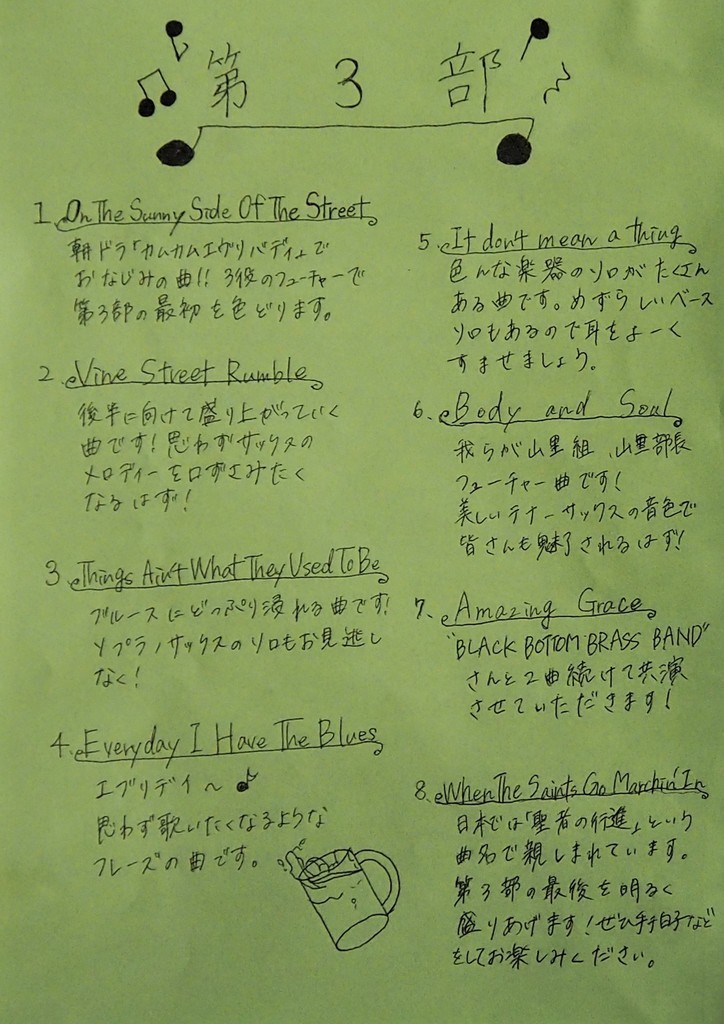 第3部
1. On The Sunny Side Of The Street
朝ドラ「カムカムエヴリバディ」で
おなじみの曲!! 3役のフューチャーで
第3部の最初を色どります。
2. Vine Street Rumble
後半に向けて盛り上がっていく
曲です!思わずサックスの
メロディーを口ずさみたく
なるはず!
3. Things Ain't What They Used To Be
ブルースにどっぷり浸れる曲です!
ソプラノサックスのソロもお見逃し
なく!
4. Everyday I Have The Blues
エブリデイ〜♪
思わず歌いたくなるような
フレーズの曲です。
5. It don't mean a thing
色んな楽器のソロがたくさん
ある曲です。めずらしいベース
ソロもあるので耳をよーく
すませましょう。
6. Body and Soul
我らが山里組、山里部長
フューチャー曲です!
美しいテナーサックスの音色で
皆さんも魅了されるはず!
7. Amazing Grace
"BLACK BOTTOM BRASS BAND"
さんと2曲続けて共演
させていただきます!
8. When The Saints Go Marchin' In
日本では「聖者の行進」という
曲名で親しまれています。
第3部の最後を明るく
盛りあげます!ぜひ手拍子など
をしてお楽しみください。